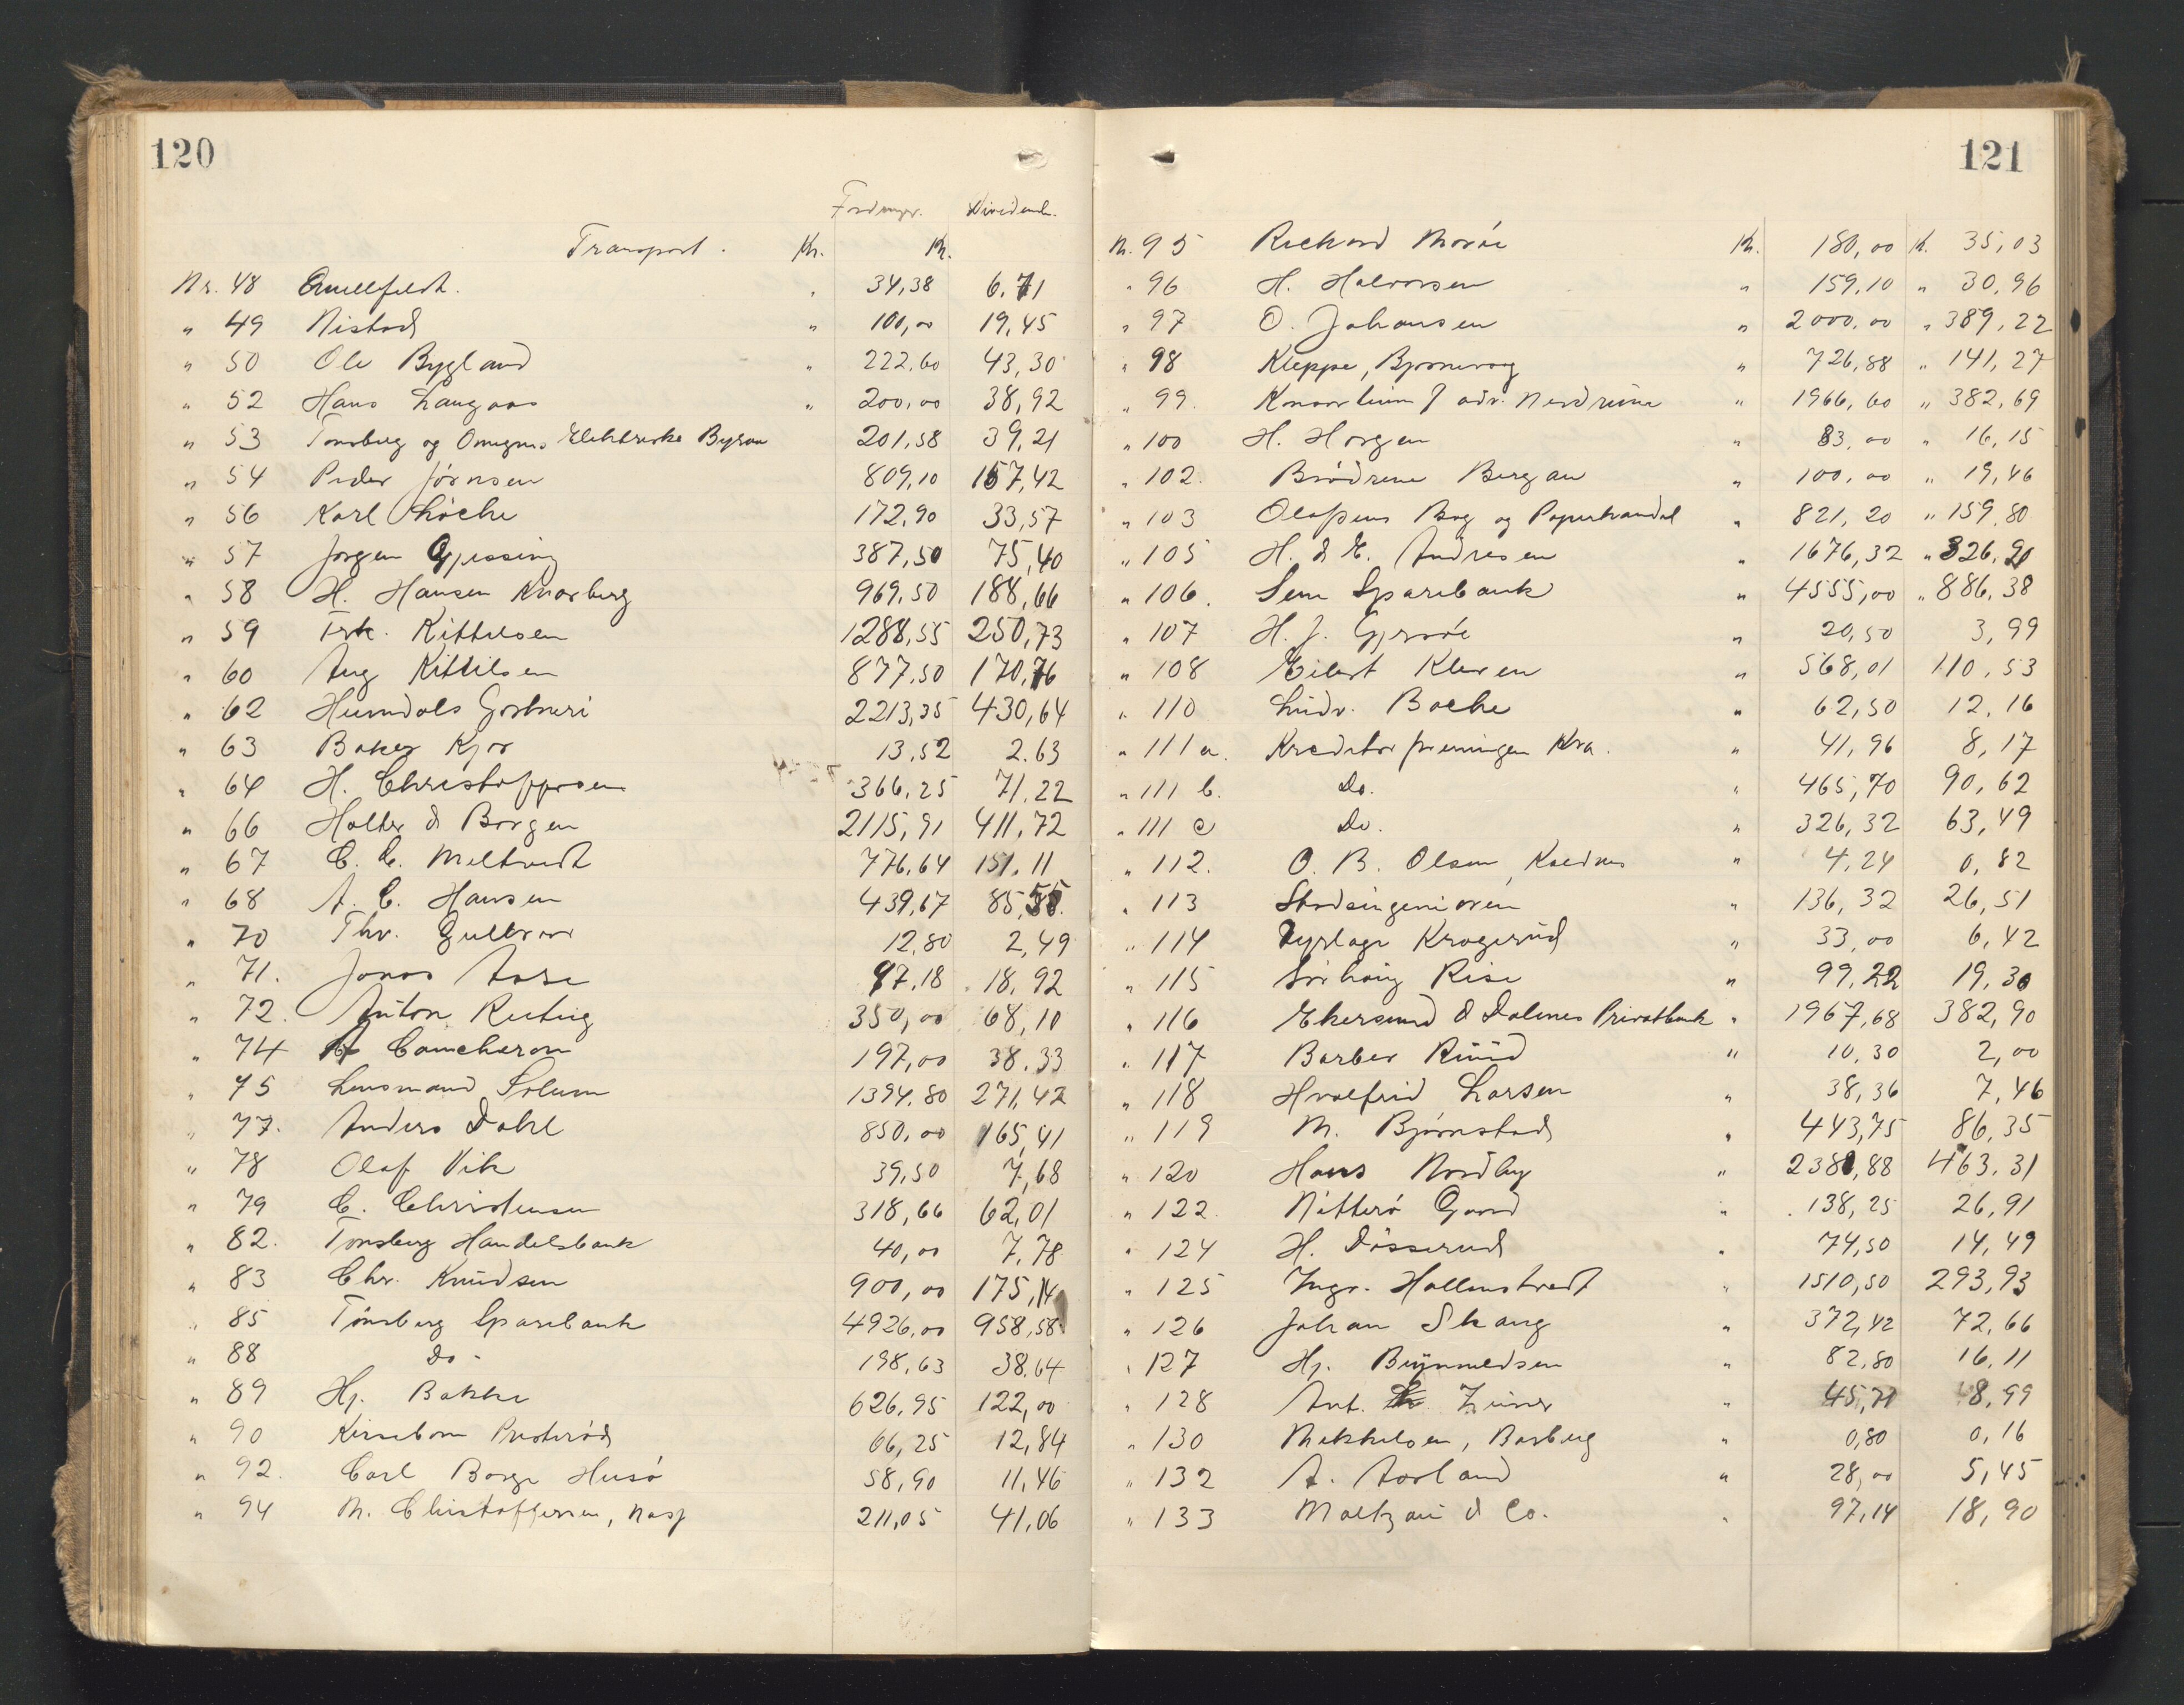 120
Fordringer. Dividende.
Transport. Kr. Kr.
Nr. 48 Quellfeldt. " 34,38 6.71
" 49 Nistad " 100,00 19,45
" 50 Ole Bygland " 222,60 43,30
" 52 Hans Langaas " 200,00 38,92
" 53 Tønsberg og Omegns Elektriske Byraa 201,58 39,21
" 54 Peder Jørnsen 809,10 157,42
" 56 Karl Løche 172,90 33,57
" 57 Jørgen Gjessing 387,50 75,40
" 58 H. Hansen Knarberg 969,50 188,66
" 59 Frk. Kittilsen 1288,55 250,73
" 60 Aug Kittilsen 877,50 170,76
" 62 Heimdals Garberi 2213,35 430,64
" 63 Baker Kjær 13,52 2.63
" 64 H. Christoffersen 366,25 71,22
" 66 Holter & Borgen 2115,91 411,72
" 67 C. C. Meltvedt 776,64 151,11
" 68 A. C. Hansen 439,67 85,55
" 70 Thv. Gulbrar 12,80 2,49
" 71. Jonas Aase 97,18 18,92
" 72. Anton Reting 350,00 68,10
" 74 A Camcheron 197,00 38.33
" 75 Lensmand Solum 1394.80 271,42
" 77. Anders Dahl 850,00 165,41
" 78 Olaf Vik 39,50 7,68
" 79 C. Christensen 318,66 62,01
" 82. Tønsberg Handelsbank 40,00 7,78
" 83 Chr. Knudsen 900,00 175,14
" 85 Tønsberg Sparebank 4926,00 958,58
" 88 Do - 198,63 38.64
" 89 Hj. Bakke 626,95 122,00
" 90 Kirsebom Presterød 66,25 12,84
" 92. Carl Borge Husø 58,90 11,46
" 94 M. Christoffersen, Nasp 211,05 41,06
121
N. 95 Rickard Narøe Kr. 180,00 K. 35,03
" 96 H. Halvorsen " 159,10 " 30,96
" 97 O. Johansen " 2000.00 " 389,22
" 98 Kleppe, Bjørnevåg " 726,88 " 141,27
" 99. Konsortium v/ adv. Nerdrum " 1966,60 " 382,69
" 100 H. Horgen " 83,00 " 16,15
" 102. Brødrene Bergan " 100,00 " 19,46
" 103 Olafsens Bog og Papirhandel " 821,20 " 159,80
" 105 H. & E. Andresen " 1676,32 " 326,20
" 106. Sem Sparebank " 4555,00 " 886,38
" 107 H. J. Gjersøe " 20,50 3,99
" 108 Eilert Kleven " 568,01 110,53
" 110 Ludv. Bache " 62,50 12,16
" 111 a. Kreditorforeningen Kra. " 41,96 8,17
" 111 b. Do. " 465,70 90,62
" 111 c Do. " 326,32 63,49
" 112. O. B. Olsen, Kaldnes " 4,24 0,82
" 113 Stadsingeniøren " 136,32 26,51
" 114 Dyrlæge Krogerud " 33,00 6,42
" 115 Rise " 99,22 19,30
" 116 Ekersund & Dalenes Privatbank " 1967,68 382,90
" 117 Barber Ruud " 10,30 2,00
" 118 Hvalfrid Larsen " 38,36 7,46
" 119 M. Bjørnstad " 443,75 86,35
" 120 Hans Nordby " 2380,88 463,31
" 122. Nøtterø Gaard " 138,25 26,91
" 124 H. Døsserud " 74,50 14,49
" 125 Ingv. Hallenstvedt " 1510,50 293,93
" 126 Johan Skaug " 372,42 72,66
" 127 Hj. Brynnildsen " 82,80 16,11
" 128 Ant. Zeiner " 45,71 8,99
" 130 Mikkelsen, Basberg " 0,80 0,16
" 132 A. Aarland " 28,00 5,45
" 133 Maltzau & Co. " 97,14 18,90